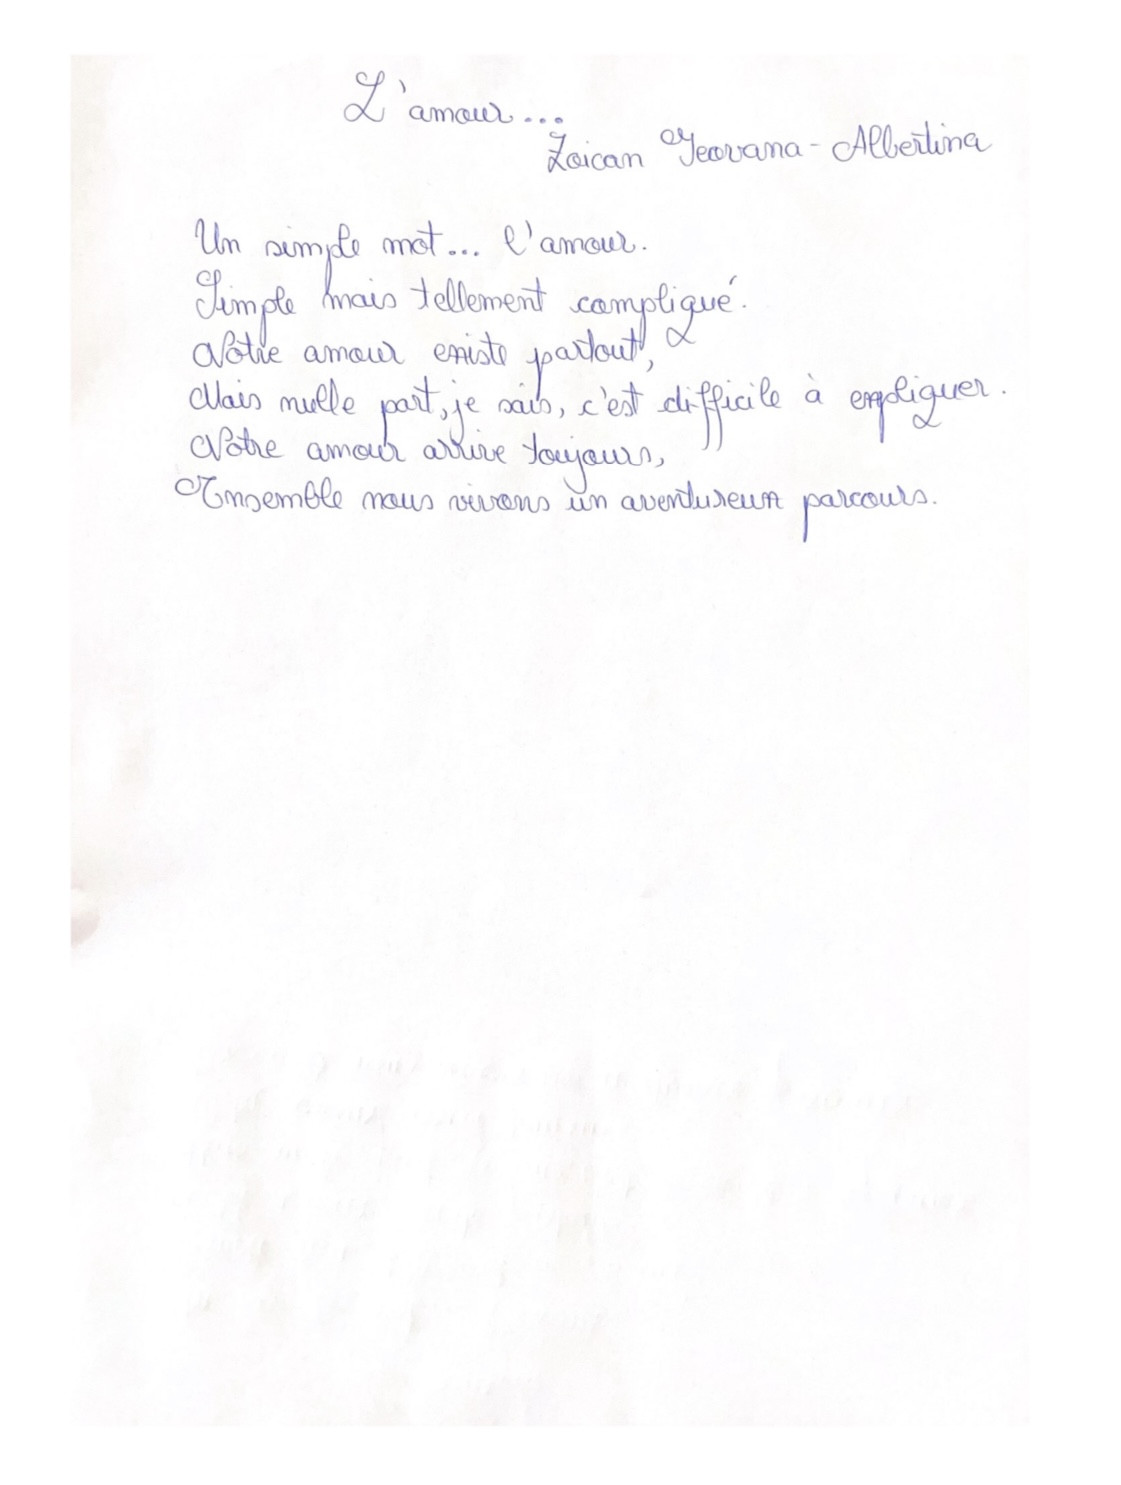 L'amour...
Zoican Geovana-Albertina
Un simple mot... l'amour.
Simple mais tellement compliqué.
Nôtre amour existe partout,
Mais nulle part, je sais, c'est difficile à expliquer.
Nôtre amour arrive toujours,
Ensemble nous vivons un aventureux parcours.